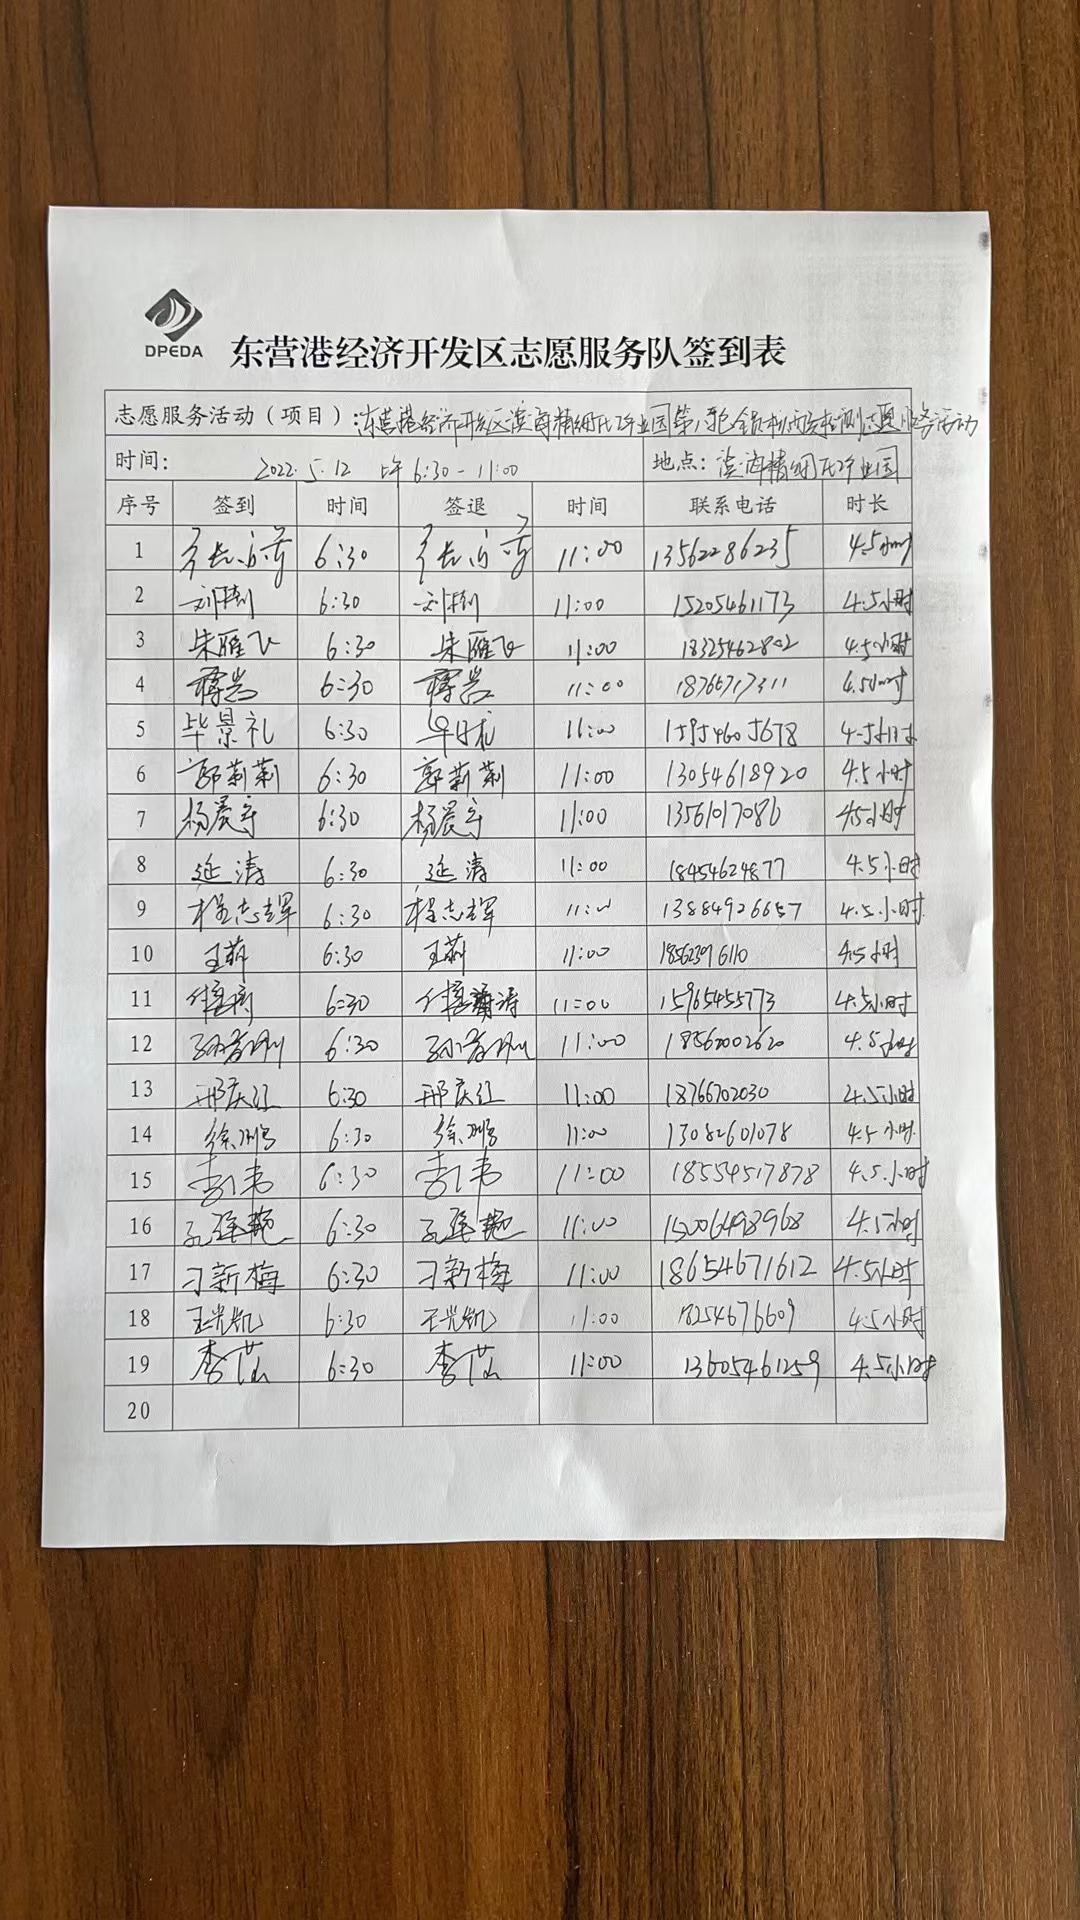 DPEDA
东营港经济开发区志愿服务队签到表
志愿服务活动（项目）:东营港经济开发区滨海精细化工产业园第八轮全员核酸检测志愿服务活动
时间: 2022.5.12 上午6:30-11:00 地点: 滨海精细化工产业园
序号 签到 时间 签退 时间 联系电话 时长
1 6:30 11:00 13562286235 4.5小时
2 刘树 6:30 刘树 11:00 15205461173 4.5小时
3 朱雁飞 6:30 朱雁飞 11:00 18325462802 4.5小时
4 6:30 11:00 18766717311 4.5小时
5 毕景礼 6:30 11:00 15954605678 4.5小时
6 郭莉莉 6:30 郭莉莉 11:00 13054618920 4.5小时
7 杨晨宇 6:30 杨晨宇 11:00 13561017086 4.5小时
8 延涛 6:30 延涛 11:00 18454624877 4.5小时
9 程志辉 6:30 程志辉 11:00 13884926657 4.5小时
10 王莉 6:30 王莉 11:00 18562396110 4.5小时
11 6:30 11:00 15965455773 4.5小时
12 6:30 11:00 18562002620 4.5小时
13 邢庆红 6:30 邢庆红 11:00 18766702030 4.5小时
14 徐鹏 6:30 徐鹏 11:00 13082601078 4.5小时
15 李韦 6:30 李韦 11:00 18554517878 4.5小时
16 6:30 11:00 15006498968 4.5小时
17 刁新梅 6:30 刁新梅 11:00 18654671612 4.5小时
18 王光凯 6:30 王光凯 11:00 18254676609 4.5小时
19 6:30 11:00 13605461259 4.5小时
20